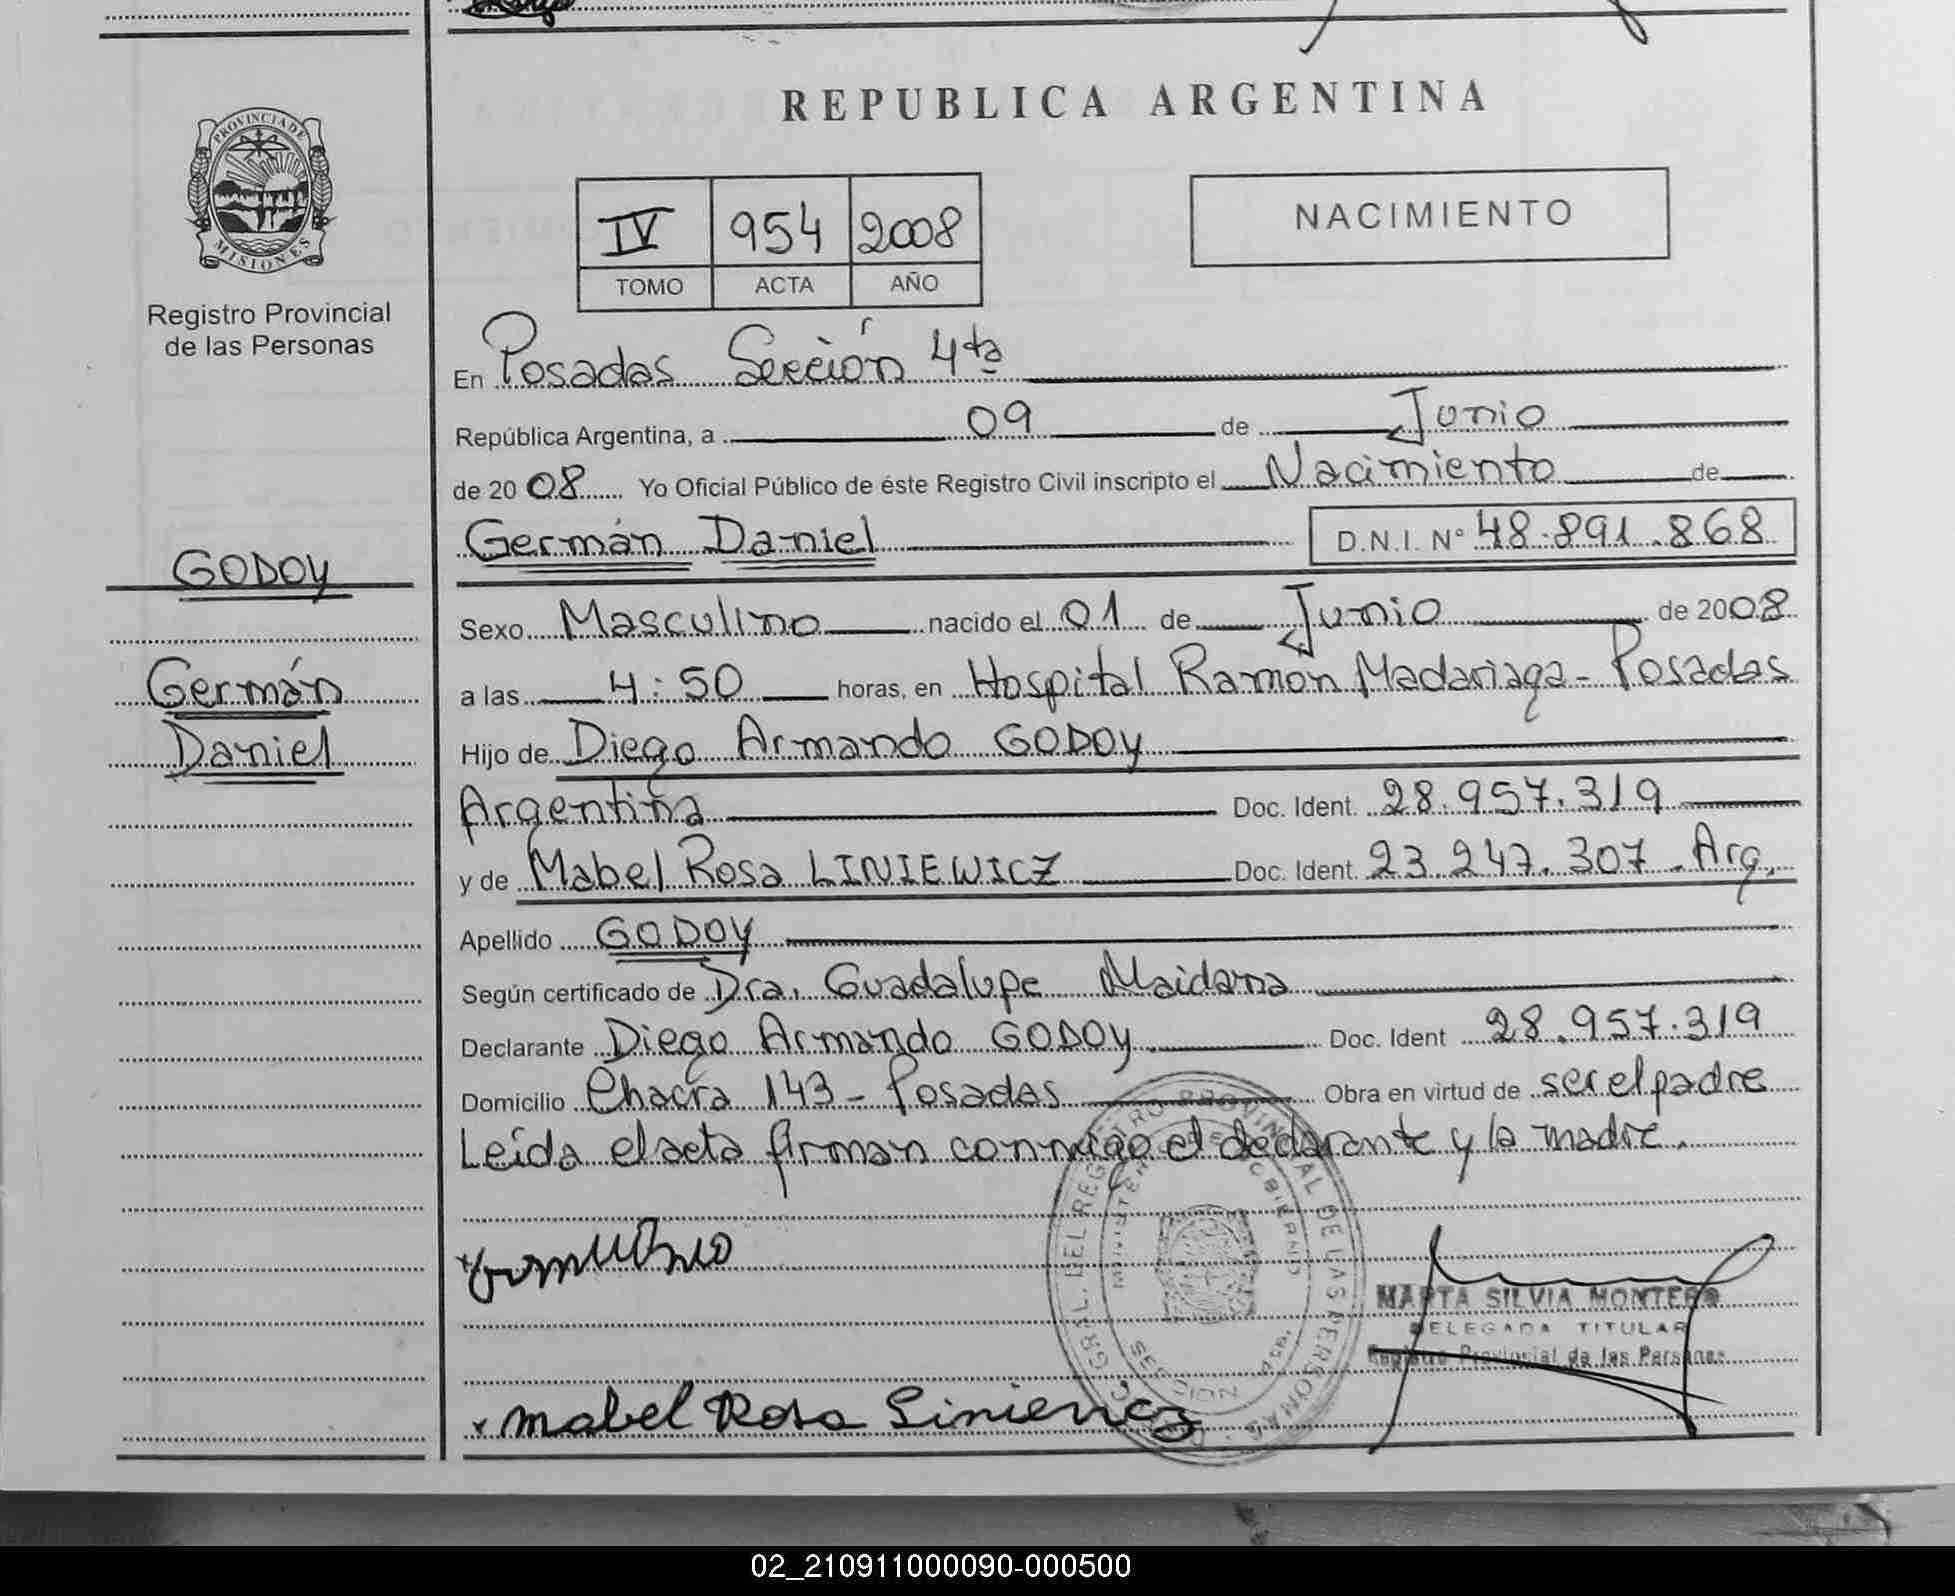 REPUBLICA ARGENTINA
PROVINCIA DE
MISIONES
Registro Provincial
de las Personas
IV 954 2008
TOMO ACTA AÑO
NACIMIENTO
En Posadas Sección 4ta
República Argentina, a 09 de Junio
de 2008 Yo Oficial Público de éste Registro Civil inscripto el Nacimiento de
Germán Daniel D.N.I. Nº 48.891.868
GODOY
Germán
Daniel
Sexo Masculino nacido el 01 de Junio de 2008
a las 4:50 horas, en Hospital Ramón Madariaga - Posadas
Hijo de Diego Armando GODOY
Argentina Doc. Ident. 28.957.319
y de Mabel Rosa LINIEWICZ Doc. Ident. 23.247.307. Arg.
Apellido GODOY
Según certificado de Dra. Guadalupe Maidana
Declarante Diego Armando GODOY Doc. Ident 28.957.319
Domicilio Chacra 143 - Posadas Obra en virtud de ser el padre
Leída el acta firman conmigo el declarante y la madre.
MARTA SILVIA MONTERO
DELEGADA TITULAR
Registro Provincial de las Personas
Mabel Rosa
02_210911000090-000500